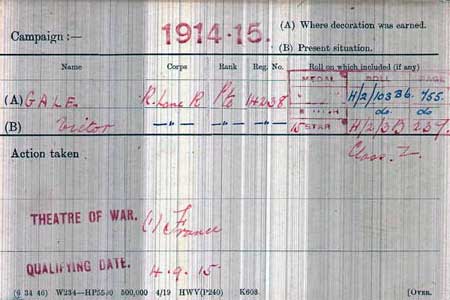 Campaign :— 1914-15. (A) Where decoration was earned.
(B) Present situation.
Name Corps Rank Reg. No. Roll on which included (if any)
MEDAL ROLL PAGE
(A) GALE. R. Lanc R Pte 14238 " H/2/103 B6. 755.
(B) Victor —"— —"— —"— do do
15 STAR H/2/3B 237.
Action taken Class. Z.
THEATRE OF WAR. (1) France
QUALIFYING DATE. 4.9.15
(6 34 46) W234—HP5590 500,000 4/19 HWV(P240) K608. [OVER.